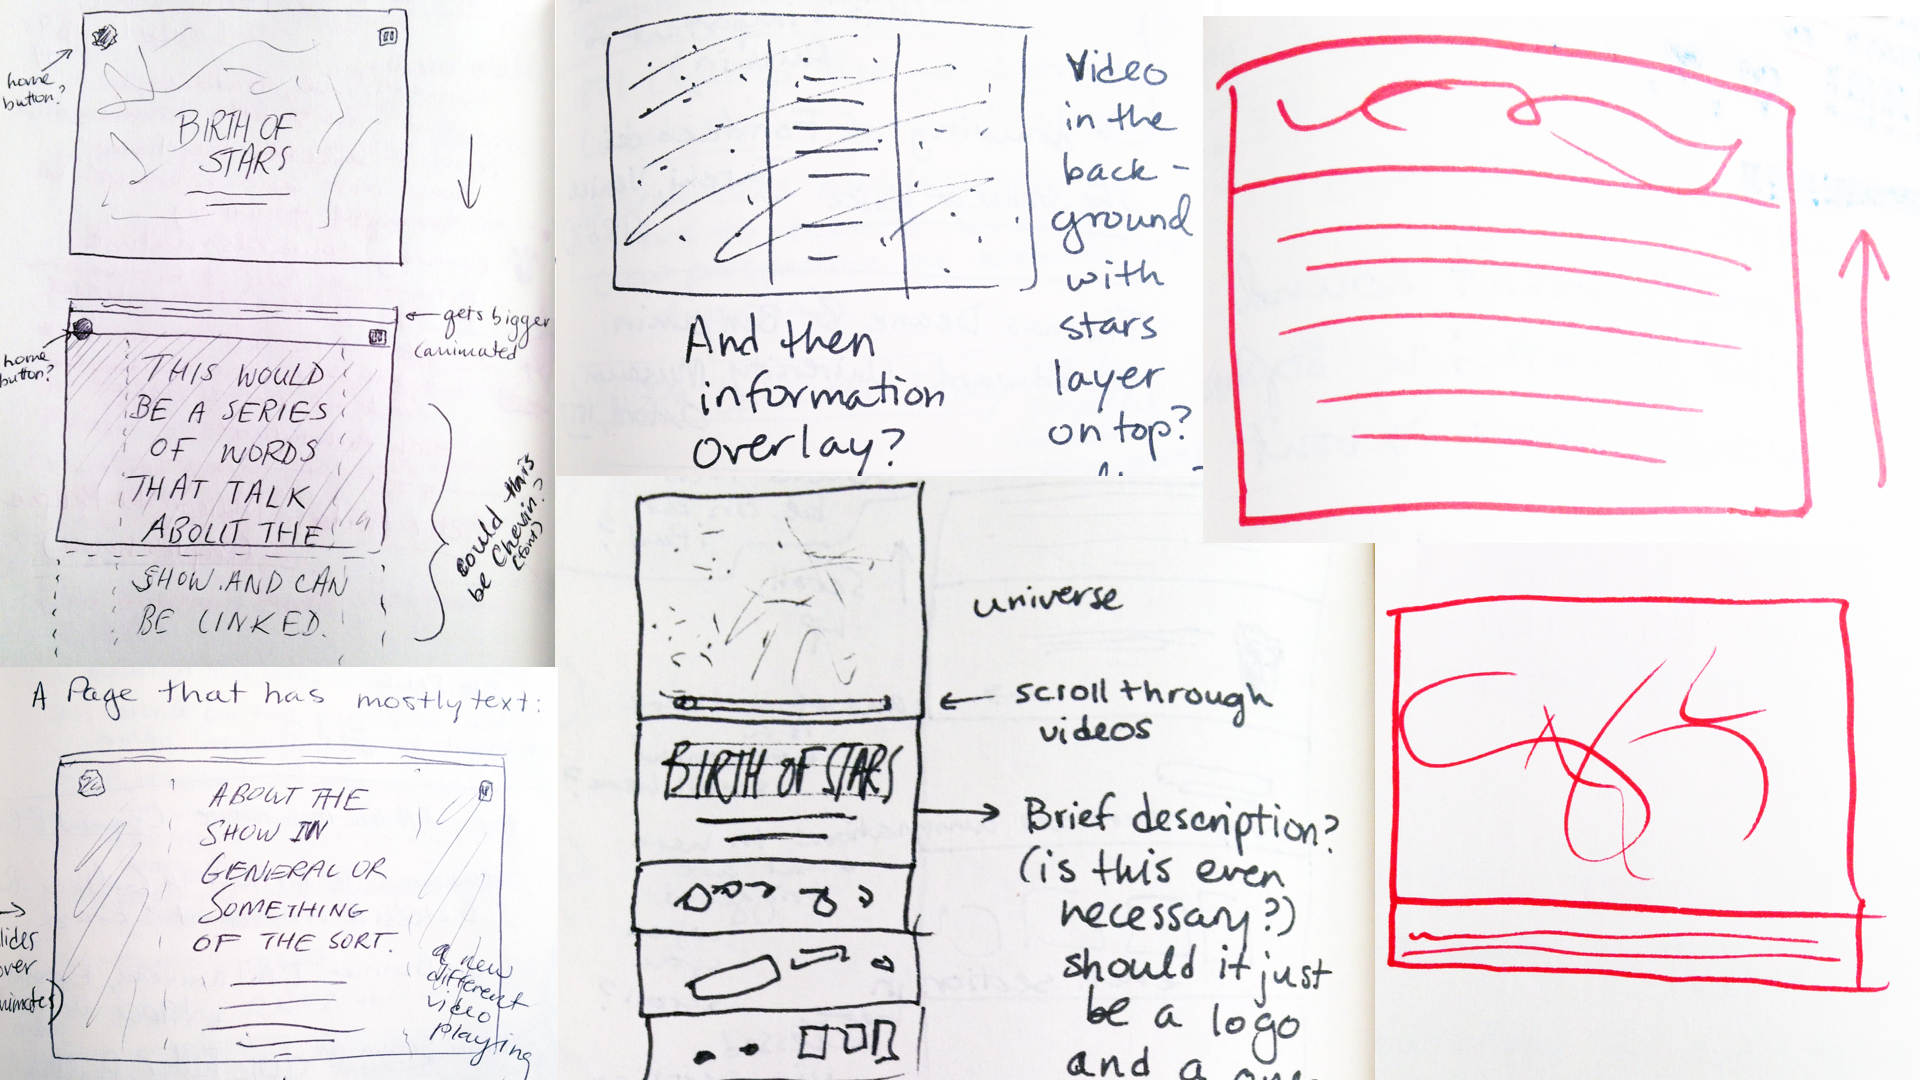 home
button?
BIRTH OF
STARS
home
button?
gets bigger
(animated
THIS WOULD
BE A SERIES
OF WORDS
THAT TALK
ABOUT THE
SHOW AND CAN
BE LINKED.
could this
be Chevin?
(font)
A Page that has mostly text:
ABOUT THE
SHOW IN
GENERAL OR
SOMETHING
OF THE SORT.
lides
over
nimates)
a new
different
video
playing
Video
in the
back-
ground
with
stars
layer
on top?
And then
information
overlay?
universe
scroll through
videos
BIRTH OF STARS
Brief description?
(is this even
necessary?)
should it just
be a logo
and a